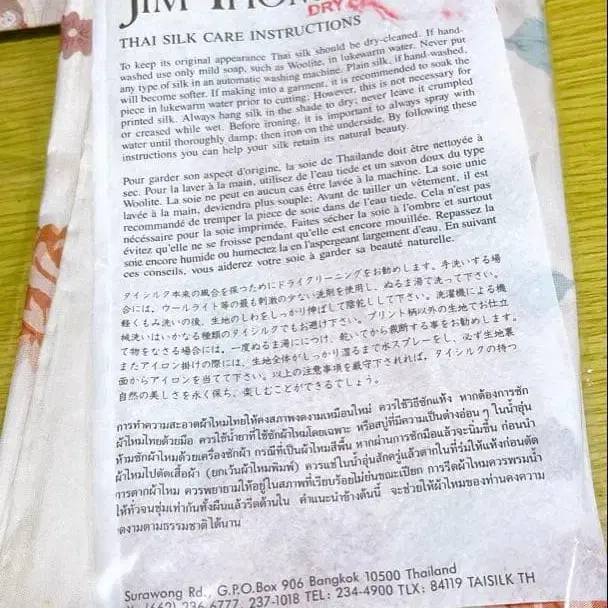 JIM THOM
DRY
THAI SILK CARE INSTRUCTIONS
To keep its original appearance Thai silk should be dry-cleaned. If hand-
washed use only mild soap, such as Woolite, in lukewarm water. Never put
any type of silk in an automatic washing machine. Plain silk, if hand-washed,
will become softer. If making into a garment, it is recommended to soak the
piece in lukewarm water prior to cutting; However, this is not necessary for
printed silk. Always hang silk in the shade to dry; never leave it crumpled
or creased while wet. Before ironing, it is important to always spray with
water until thoroughly damp; then iron on the underside. By following these
instructions you can help your silk retain its natural beauty.
Pour garder son aspect d'origine, la soie de Thailande doit être nettoyée à
sec. Pour la laver à la main, utilisez de l'eau tiede et un savon doux du type
Woolite. La soie ne peut en aucun cas être lavée à la machine. La soie unie
lavée à la main, deviendra plus souple. Avant de tailler un vêtement, il est
recommandé de tremper la piece de soie dans de l'eau tiede. Cela n'est pas
nécéssaire pour la soie imprimée. Faites sécher la soie à l'ombre et surtout
évitez qu'elle ne se froisse pendant qu'elle est encore mouillée. Repassez la
soie encore humide ou humectez la en l'aspergeant largement d'eau. En suivant
ces conseils, vous aiderez votre soie à garder sa beauté naturelle.
タイシルク本来の風合を保つためにドライクリーニングをお勧めします。手洗いする場
合には、ウールライト等の最も刺激の少ない洗剤を使用し、ぬるま湯で洗って下さい。
軽くもみ洗いの後、生地のしわをしっかり伸ばして陰乾しして下さい。洗濯機による機
械洗いはいかなる種類のタイシルクでもお避け下さい。プリント柄以外の生地でお仕立
て物をなさる場合には、一度ぬるま湯ににつけ、乾いてから裁断する事をお勧めします。
またアイロン掛けの際には、生地全体がしっかり湿るまで水スプレーをし、必ず生地裏
面からアイロンを当てて下さい。以上の注意事項を厳守下されれば、タイシルクの持つ
自然の美しさを永く保ち、楽しむことができるでしょう。
การทำความสะอาดผ้าไหมไทยให้คงสภาพงดงามเหมือนใหม่ ควรใช้วิธีซักแห้ง หากต้องการซัก
ผ้าไหมไทยด้วยมือ ควรใช้น้ำยาที่ใช้ซักผ้าไหมโดยเฉพาะ หรือสบู่ที่มีความเป็นด่างอ่อน ๆ ในน้ำอุ่น
ห้ามซักผ้าไหมด้วยเครื่องซักผ้า กรณีที่เป็นผ้าไหมสีพื้น หากผ่านการซักมือแล้วจะนิ่มขึ้น ก่อนนำ
ผ้าไหมไปตัดเสื้อผ้า (ยกเว้นผ้าไหมพิมพ์) ควรแช่ในน้ำอุ่นสักครู่แล้วตากในที่ร่มให้แห้งก่อนตัด
การตากผ้าไหม ควรพยายามให้อยู่ในสภาพที่เรียบร้อยไม่ย่นขณะเปียก การรีดผ้าไหมควรพรมน้ำ
ให้ทั่วจนชุ่มเท่ากันทั้งผืนแล้วรีดด้านใน คำแนะนำข้างต้นนี้ จะช่วยให้ผ้าไหมของท่านคงความ
งดงามตามธรรมชาติได้นาน
Surawong Rd., G.P.O.Box 906 Bangkok 10500 Thailand
(662) 236-6777, 237-1018 TEL: 234-4900 TLX: 84119 TAISILK TH